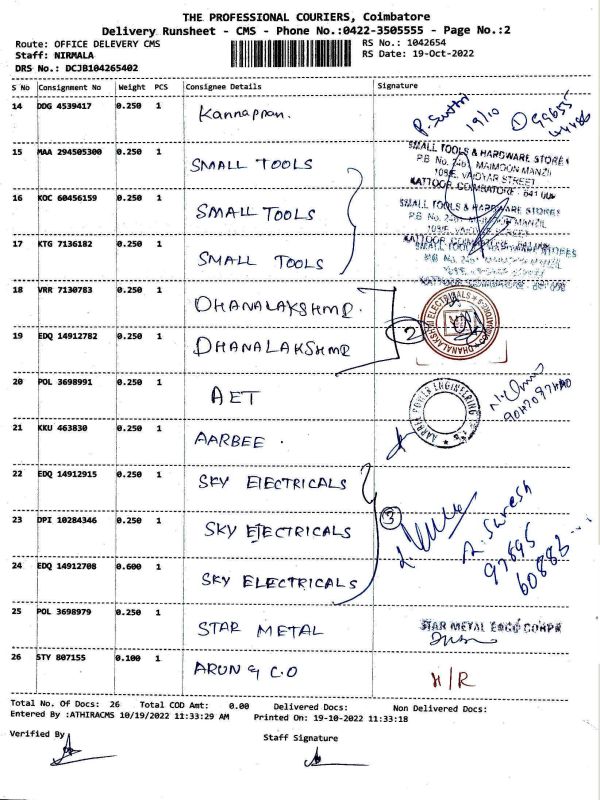 THE PROFESSIONAL COURIERS, Coimbatore
Delivery Runsheet - CMS - Phone No.:0422-3505555 - Page No.:2
Route: OFFICE DELEVERY CMS
Staff: NIRMALA
DRS No.: DCJB104265402
RS No.: 1042654
RS Date: 19-Oct-2022
S No Consignment No Weight PCS Consignee Details Signature
14 DDG 4539417 0.250 1 Kannappan. 19/10
15 MAA 294505300 0.250 1 SMALL TOOLS
SMALL TOOLS & HARDWARE STORES
MAIMOON MANZIL
KATTOOR COIMBATORE
16 KOC 60456159 0.250 1 SMALL TOOLS
SMALL TOOLS & HARDWARE STORES
17 KTG 7136182 0.250 1 SMALL TOOLS
18 VRR 7130783 0.250 1 DHANALAKSHMI.
2
DHANALAKSHMI ELECTRICALS
19 EDQ 14912782 0.250 1 DHANALAKSHMI
20 POL 3698991 0.250 1 AET
POWER ENGINEERING
21 KKU 463830 0.250 1 AARBEE.
22 EDQ 14912915 0.250 1 SKY ELECTRICALS
23 DPI 10284346 0.250 1 SKY ELECTRICALS 3
A. Suresh
97895
60882
24 EDQ 14912708 0.600 1 SKY ELECTRICALS
25 POL 3698979 0.250 1 STAR METAL STAR METAL
26 STY 807155 0.100 1 ARUN & CO H/R
Total No. Of Docs: 26 Total COD Amt: 0.00 Delivered Docs: Non Delivered Docs:
Entered By :ATHIRACMS 10/19/2022 11:33:29 AM Printed On: 19-10-2022 11:33:18
Verified By
Staff Signature